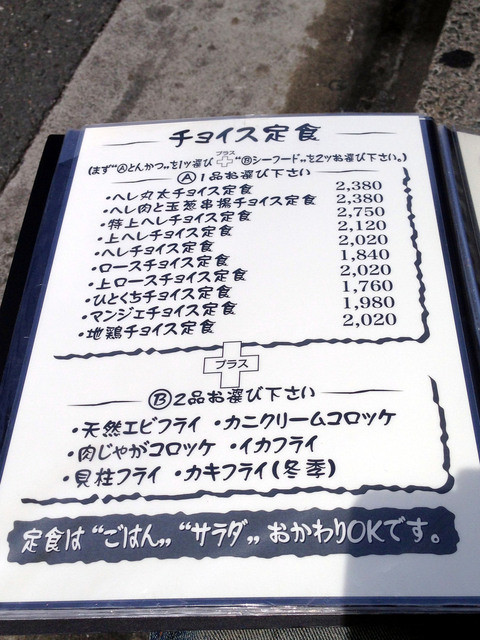 チョイス定食
(まず“Ⓐとんかつ„を1ッ選び プラス “Ⓑシーフード„を2ッお選び下さい。)
Ⓐ1品お選び下さい
・ヘレ丸太チョイス定食 2,380
・ヘレ肉と玉葱串揚チョイス定食 2,380
・特上ヘレチョイス定食 2,750
・上ヘレチョイス定食 2,120
・ヘレチョイス定食 2,020
・ロースチョイス定食 1,840
・上ロースチョイス定食 2,020
・ひとくちチョイス定食 1,760
・マンジェチョイス定食 1,980
・地鶏チョイス定食 2,020
プラス
Ⓑ2品お選び下さい
・天然エビフライ ・カニクリームコロッケ
・肉じゃがコロッケ ・イカフライ
・貝柱フライ ・カキフライ(冬季)
定食は“ごはん„“サラダ„おかわりOKです。